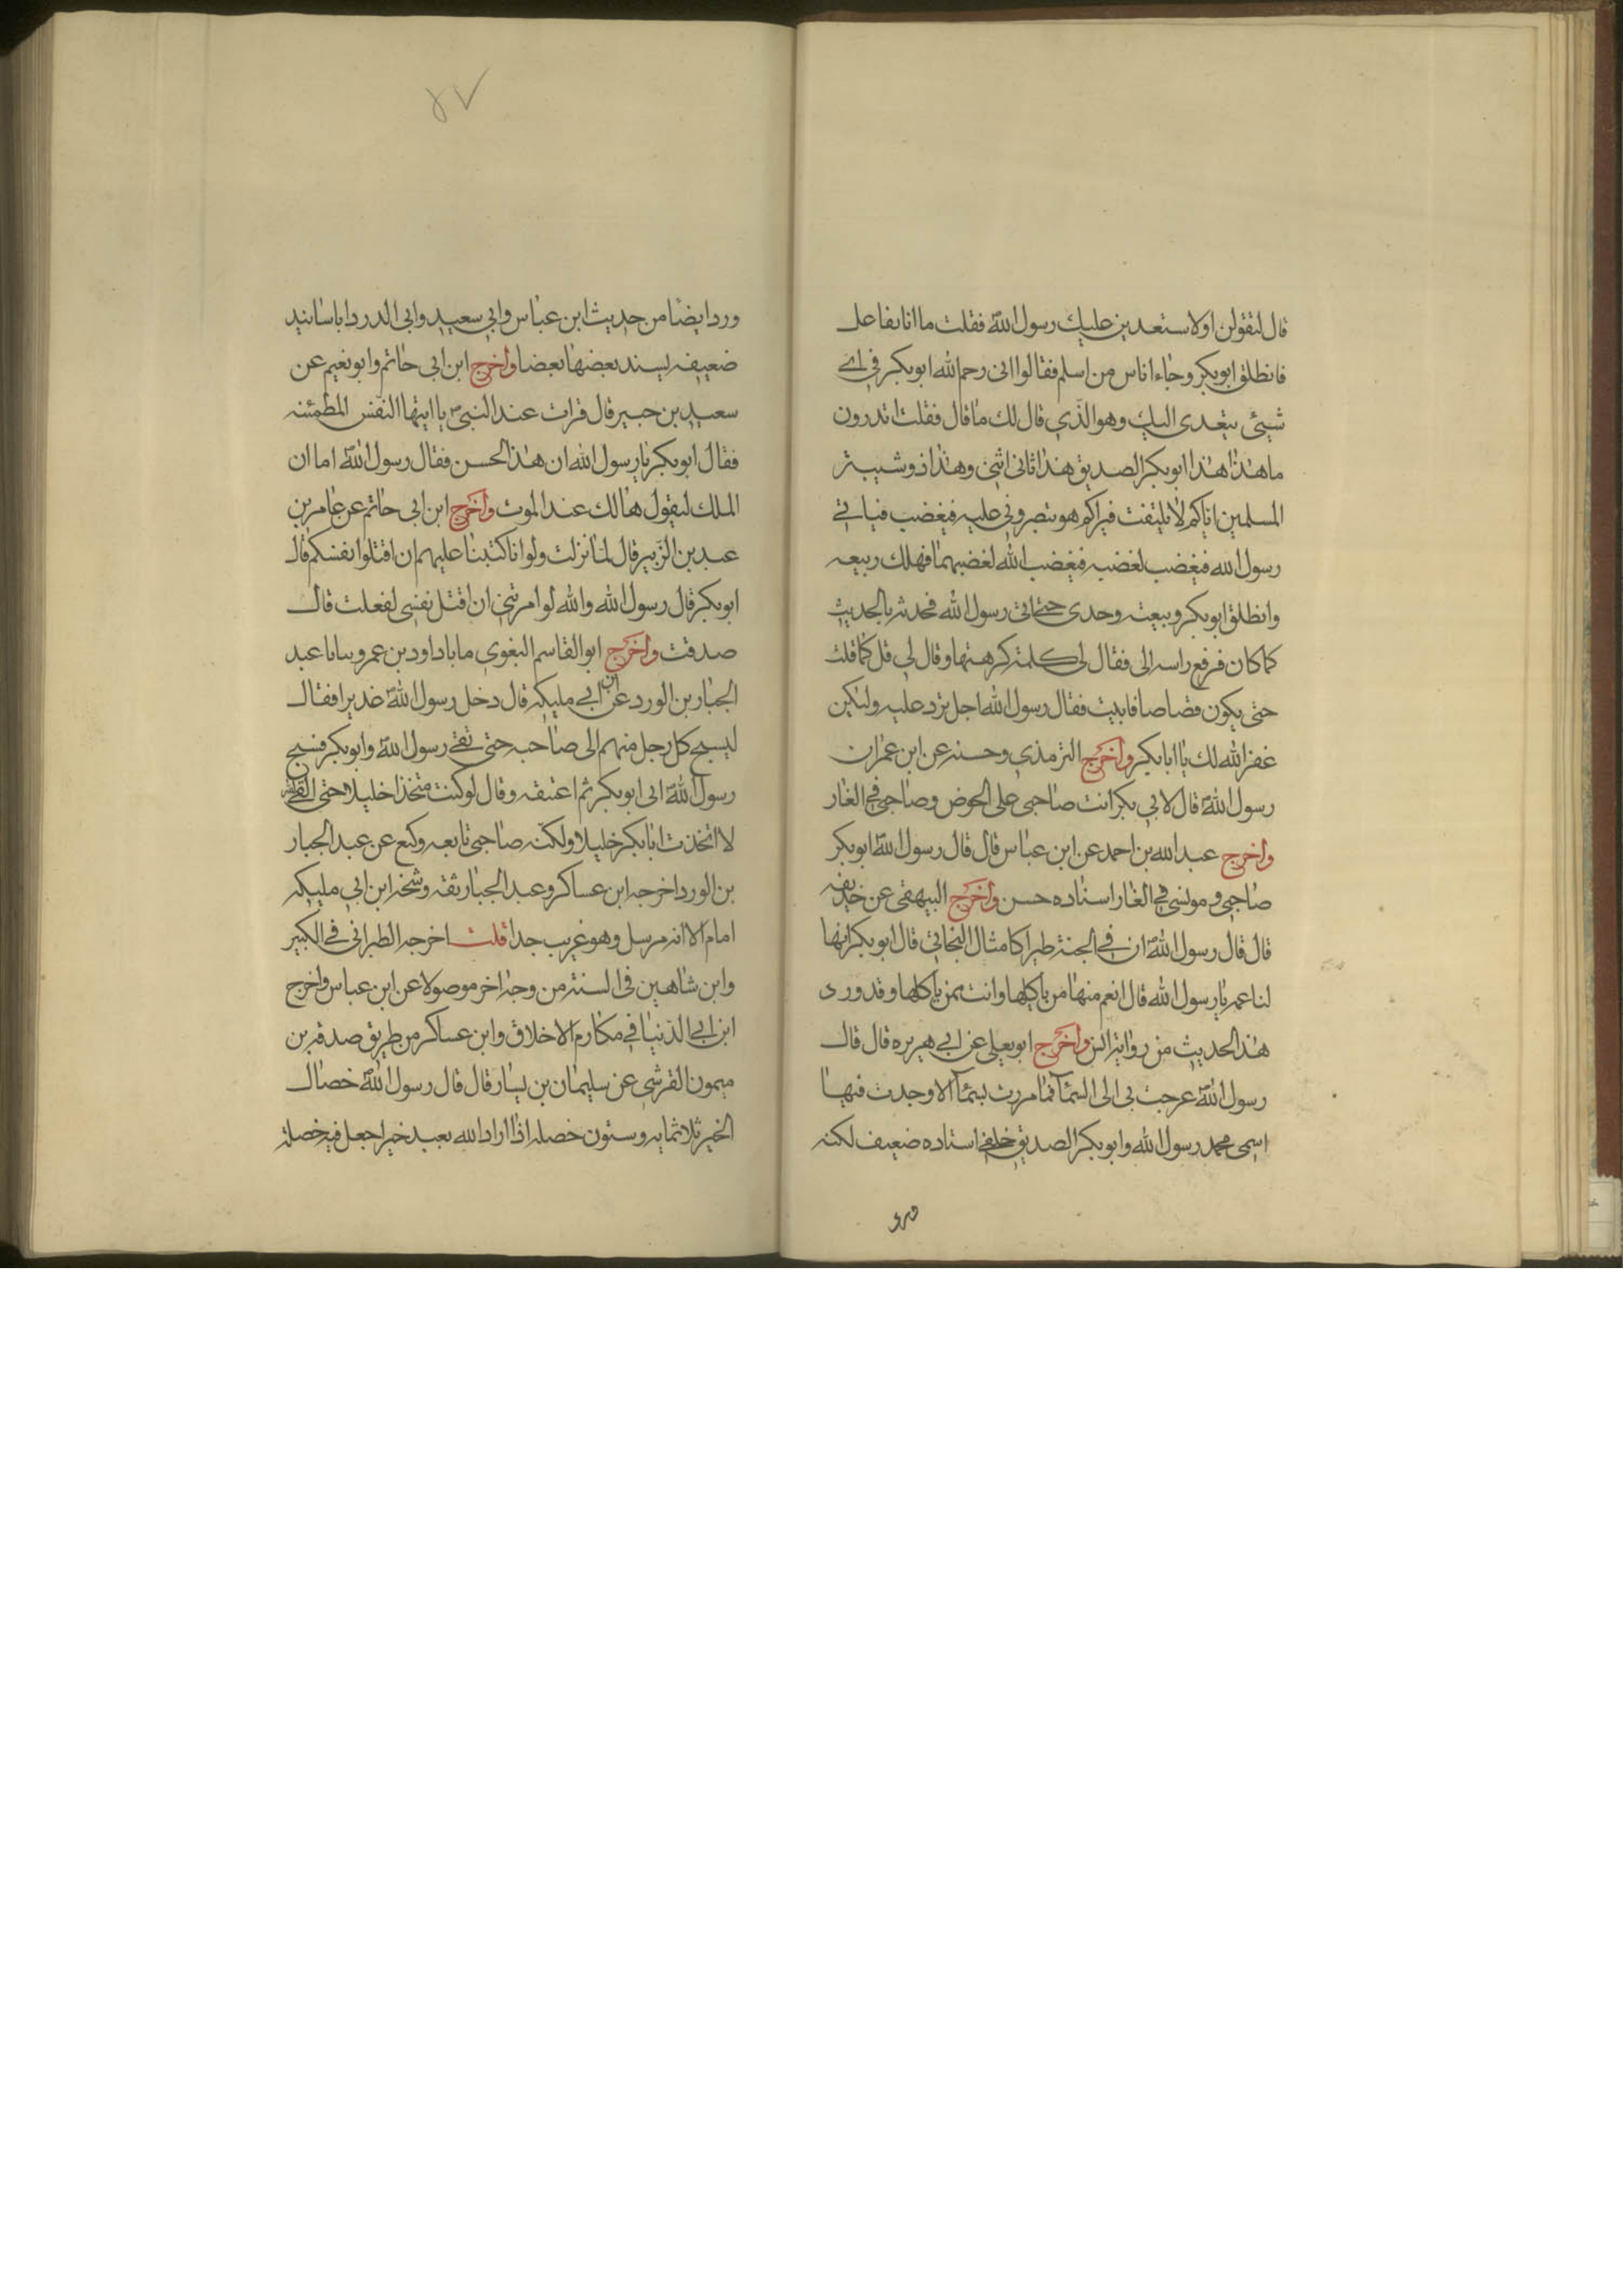 قال لتقولن اولاستعدين عليك رسول الله فقلت ما انا بفاعل
فانطلق ابوبكر وجاء اناس من اسلم فقالوا الى رحم الله ابوبكر فى اى
شيئ يتعدى اليك وهو الذى قال لك ما قال فقلت اتدرون
ما هذا هذا ابوبكر الصديق هذا ثانى اثنى وهذا ذو شيبة
المسلمين اياكم لا يلتفت فيراكم هو تنصرونى عليه فيغضب فياتى
رسول الله فيغضب لغضبه فيغضب الله لغضبهما فهلك ربيعه
وانطلق ابوبكر وتبعته وحدى حتى اتى رسول الله فحدثه بالحديث
كما كان فرفع راسه الى فقال لى كلمة كرهتها وقال لى قل كما قلت
حتى يكون قصاصا فابيت فقال رسول الله اجل ترد عليه ولكن
غفر الله لك يا ابا بكر واخرج الترمذى وحسنه عن ابن عمر ان
رسول الله قال لابى بكر انت صاحبى على الحوض وصاحبى فى الغار
واخرج عبد الله بن احمد عن ابن عباس قال قال رسول الله ابوبكر
صاحبى ومونسى فى الغار اسناده حسن واخرج البيهقى عن حذيفه
قال قال رسول الله ان فى الجنة طيرا كامثال النجاتى قال ابوبكر انها
لناعمه يا رسول الله قال انعم منها من ياكلها وانت ممن ياكلها وقد ورد
هذا الحديث من رواية انس واخرج ابويعلى عن ابى هريره قال قال
رسول الله عرجت بى الى السماء فما مررت بسماء الا وجدت فيها
اسمى محمد رسول الله وابوبكر الصديق خلفى اسناده ضعيف لكنه
ورد
٨٧
ورد ايضا من حديث ابن عباس وابى سعيد وابى الدردا باسانيد
ضعيفه يسند بعضها بعضا واخرج ابن ابى حاتم وابو نعيم عن
سعيد بن جبير قال قرات عند النبى يا ايتها النفس المطمئنه
فقال ابوبكر يا رسول الله ان هذا لحسن فقال رسول الله اما ان
الملك ليقول هالك عند الموت واخرج ابن ابى حاتم عن عامر بن
عبد بن الزبير قال لما نزلت ولو انا كتبنا عليهم ان اقتلوا انفسكم قال
ابوبكر قال رسول الله والله لو امرتنى ان اقتل نفسى لفعلت قال
صدقت واخرج ابو القاسم البغوى داود بن عمرو عبد
الجبار بن الورد عن ابن ابى مليكه قال دخل رسول الله غديرا فقال
ليسبح كل رجل منهم الى صاحبه حتى بقى رسول الله وابوبكر فسبح
رسول الله الى ابوبكر ثم اعتنقه وقال لوكنت متخذا خليلا حتى القى
لا اتخذت ابا بكر خليلا ولكنه صاحبى تابعه وكيع عن عبد الجبار
بن الورد اخرجه ابن عساكر وعبد الجبار ثقه وشيخه ابن ابى مليكه
امام الا انه مرسل وهو غريب جدا قلت اخرجه الطبرانى فى الكبير
وابن شاهين فى السنة من وجه اخر موصولا عن ابن عباس واخرج
ابن ابى الدنيا فى مكارم الاخلاق وابن عساكر من طريق صدقه بن
ميمون القرشى عن سليمان بن يسار قال قال رسول الله خصال
الخير ثلاثمايه وستون خصله اذا اراد الله بعبد خيرا جعل فيه خصلة